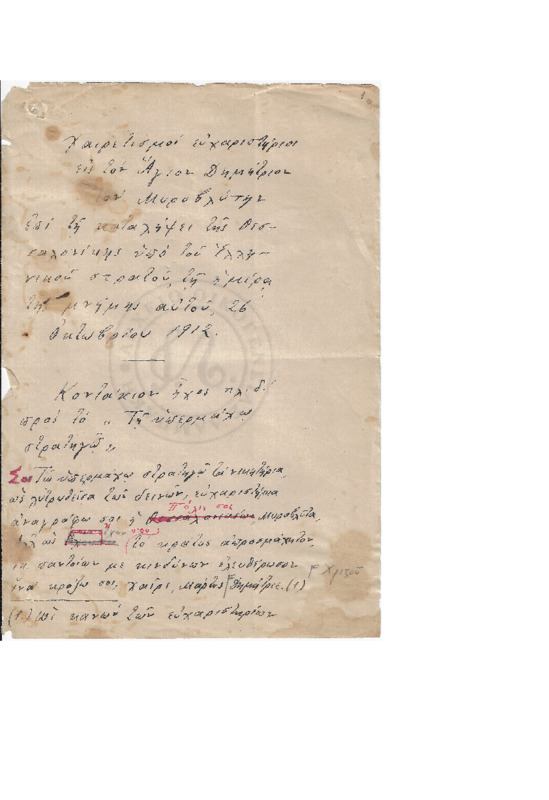 Χαιρετισμοί εὐχαριστήριοι
εἰς τὸν Ἅγιον Δημήτριον
τὸν Μυροβλύτην
ἐπὶ τῇ καταλήψει τῆς Θεσ-
σαλονίκης ὑπὸ τοῦ Ἑλλη-
νικοῦ στρατοῦ, τῇ ἡμέρᾳ
τῆς μνήμης αὐτοῦ, 26
Ὀκτωβρίου 1912.
Κοντάκιον ἦχος πλ. δ'
πρὸς τὸ „ Τῇ ὑπερμάχῳ
στρατηγῷ „
Σοι Τῷ ὑπερμάχῳ στρατηγῷ τὰ νικητήρια,
ὡς λυτρωθεῖσα τῶν δεινῶν, εὐχαριστήρια
πόλις σου
ἀναγράφω σοι ἡ Θεσσαλονικέων Μυροβλύτα,
ἀλλ' ὡς τὸ κράτος ἀπροσμάχητον,
ἐκ παντοίων με κινδύνων ἐλευθέρωσον
ἵνα κράζω σοι, χαῖρε, Μάρτυς Δημήτριε. (1) Χριστοῦ
(1) εὐχαριστηρίων